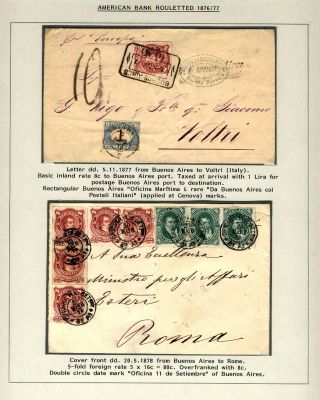 AMERICAN BANK ROULETTED 1876/77
Voltri
Letter dd. 5.11.1877 from Buenos Aires to Voltri (Italy).
Basic inland rate 8c to Buenos Aires port. Taxed at arrival with 1 Lira for
postage Buenos Aires port to destination.
Rectangular Buenos Aires "Oficina Maritima & rare "Da Buenos Aires coi
Postali Italiani" (applied at Genova) marks.
A Sua Eccellenza
Ministro pegli Affari
Esteri
Roma
Cover front dd. 20.5.1878 from Buenos Aires to Rome.
5-fold foreign rate 5 x 16c = 80c. Overfranked with 8c.
Double circle date mark "Oficina 11 de Setiembre" of Buenos Aires.